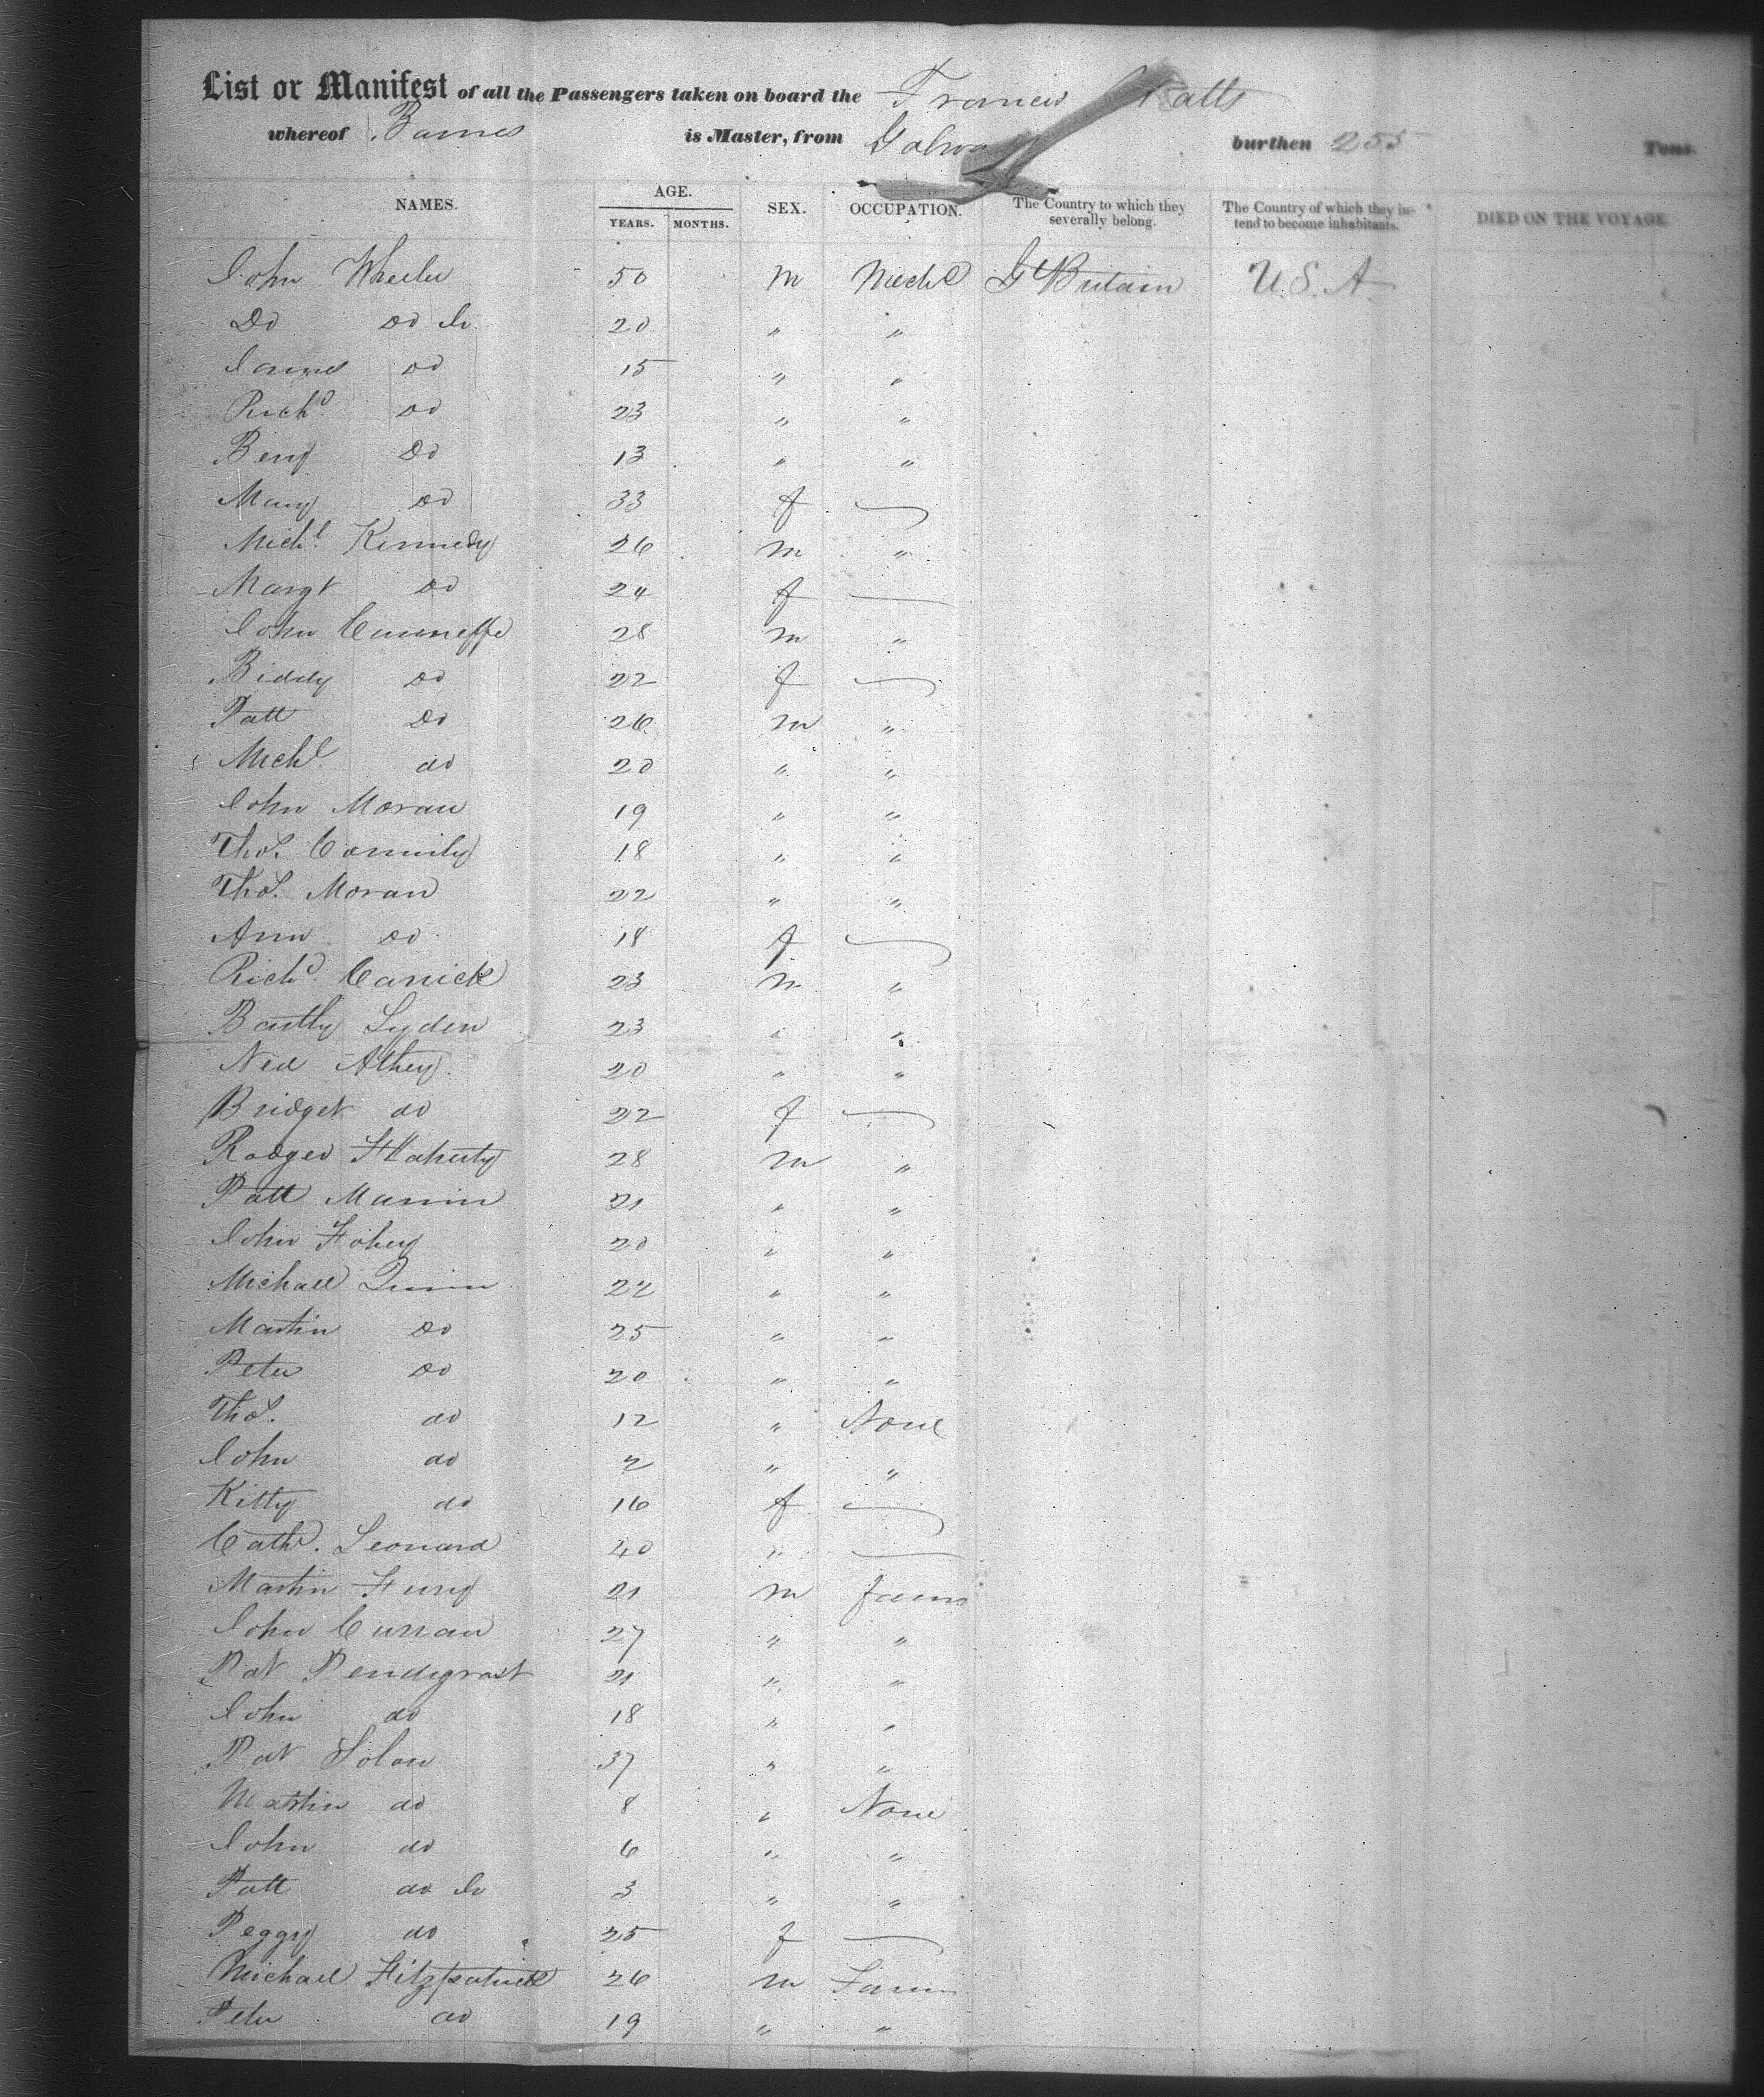 List or Manifest of all the Passengers taken on board the Francis Watts
whereof Barnes is Master, from Galway burthen 255 Tons.
NAMES. AGE. YEARS. MONTHS. SEX. OCCUPATION. The Country to which they severally belong. The Country of which they intend to become inhabitants. DIED ON THE VOYAGE.
John Wheeler 50 m Mechc Gt Britain U.S.A.
Do Do Jr 20 " "
James Do 15 " "
Richd. Do 23 " "
Benj Do 13 " "
Mary Do 33 f —
Michl. Kennedy 26 m "
Margt Do 24 f —
John Cunneffe 28 m "
Biddy Do 22 f —
Patt Do 26 m "
Michl. do 20 " "
John Moran 19 " "
Thos. Connily 18 " "
Thos. Moran 22 " "
Ann Do 18 f —
Richd. Carrick 23 m "
Bartly Lyden 23 " "
Ned Athey 20 " "
Bridget do 22 f —
Rodger Flaherty 28 m "
Patt Mannin 21 " "
John Fohey 20 " "
Michael Quinn 22 " "
Martin Do 25 " "
Peter Do 20 " "
Thos. do 12 " None
John do 2 " "
Kitty do 16 f —
Cathe. Leonard 40 " —
Martin Fury 21 m farm
John Curran 27 " "
Pat Pendigrast 21 " "
John do 18 " "
Pat Solan 37 " "
Martin do 8 " None
John do 6 " "
Patt do Jr 3 " "
Peggy do 25 f —
Michael Fitzpatrick 26 m Farm
Peter do 19 " "